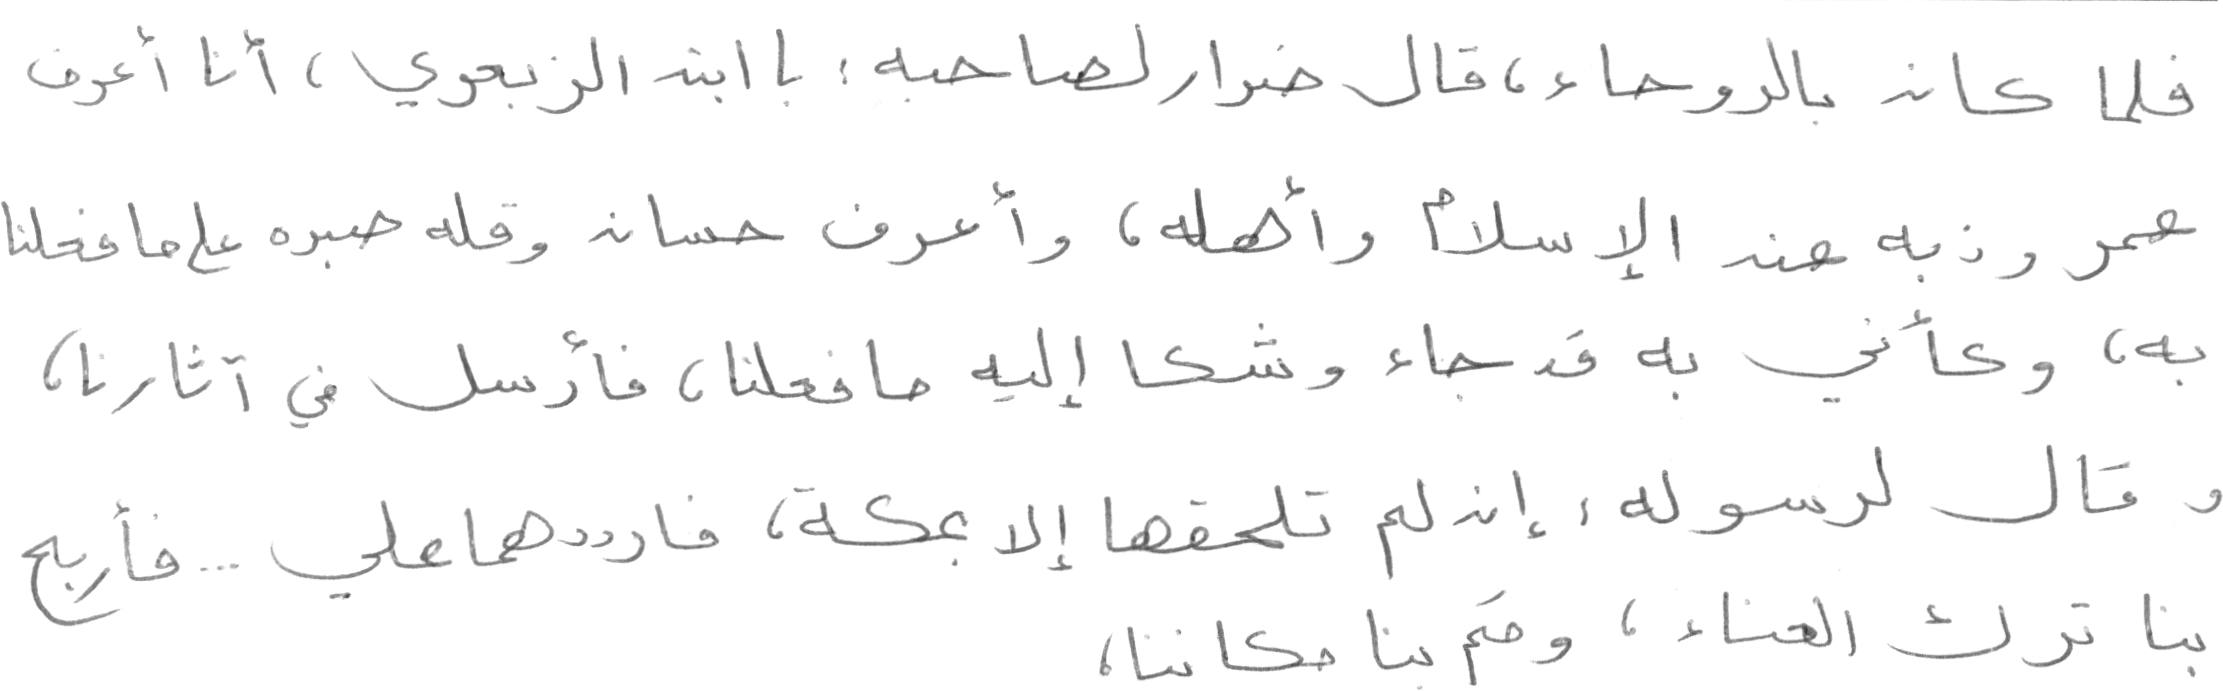 فلما كان بالروحاء، قال ضرار لصاحبه: يا ابن الزبعري، أنا أعرف
عمر وذبه عن الإسلام وأهله، وأعرف حسان وقله صبره على ما فعلنا
به، وكأني به قد جاء وشكا إليه ما فعلنا، فأرسل في آثارنا،
وقال لرسوله: إن لم تلحقها إلا بمكة، فارددهما علي ... فأربح
بنا ترك العناء، وقم بنا مكاننا،